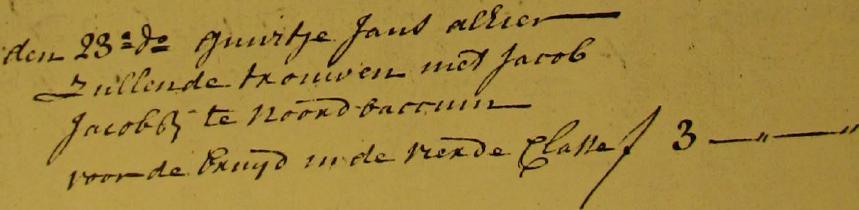 den 23.e do guurtje Jans alhier —
zullende trouwen met Jacob
Jacobsz te Noordbaccum —
voor de bruijd in de vierde Classe f 3 — " — "